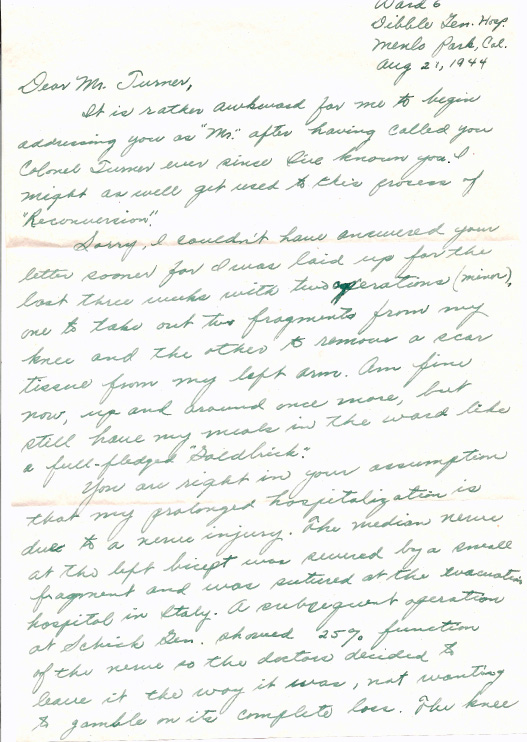 Ward 6
Dibble Gen. Hosp.
Menlo Park, Cal.
Aug 21, 1944
Dear Mr. Turner,
It is rather awkward for me to begin
addressing you as "Mr." after having called you
Colonel Turner ever since I've known you. I
might as well get used to this process of
"Reconversion".
Sorry, I couldn't have answered your
letter sooner for I was laid up for the
last three weeks with two operations (minor),
one to take out two fragments from my
knee and the other to remove a scar
tissue from my left arm. Am fine
now, up and around once more, but
still have my meals in the ward like
a full-fledged "Goldbrick".
You are right in your assumption
that my prolonged hospitalization is
due to a nerve injury. The median nerve
at the left bicept was severed by a small
fragment and was sutured at the evacuation
hospital in Italy. A subsequent operation
at Schick Gen. showed 25% function
of the nerve so the doctors decided to
leave it the way it was, not wanting
to gamble on its complete loss. The knee